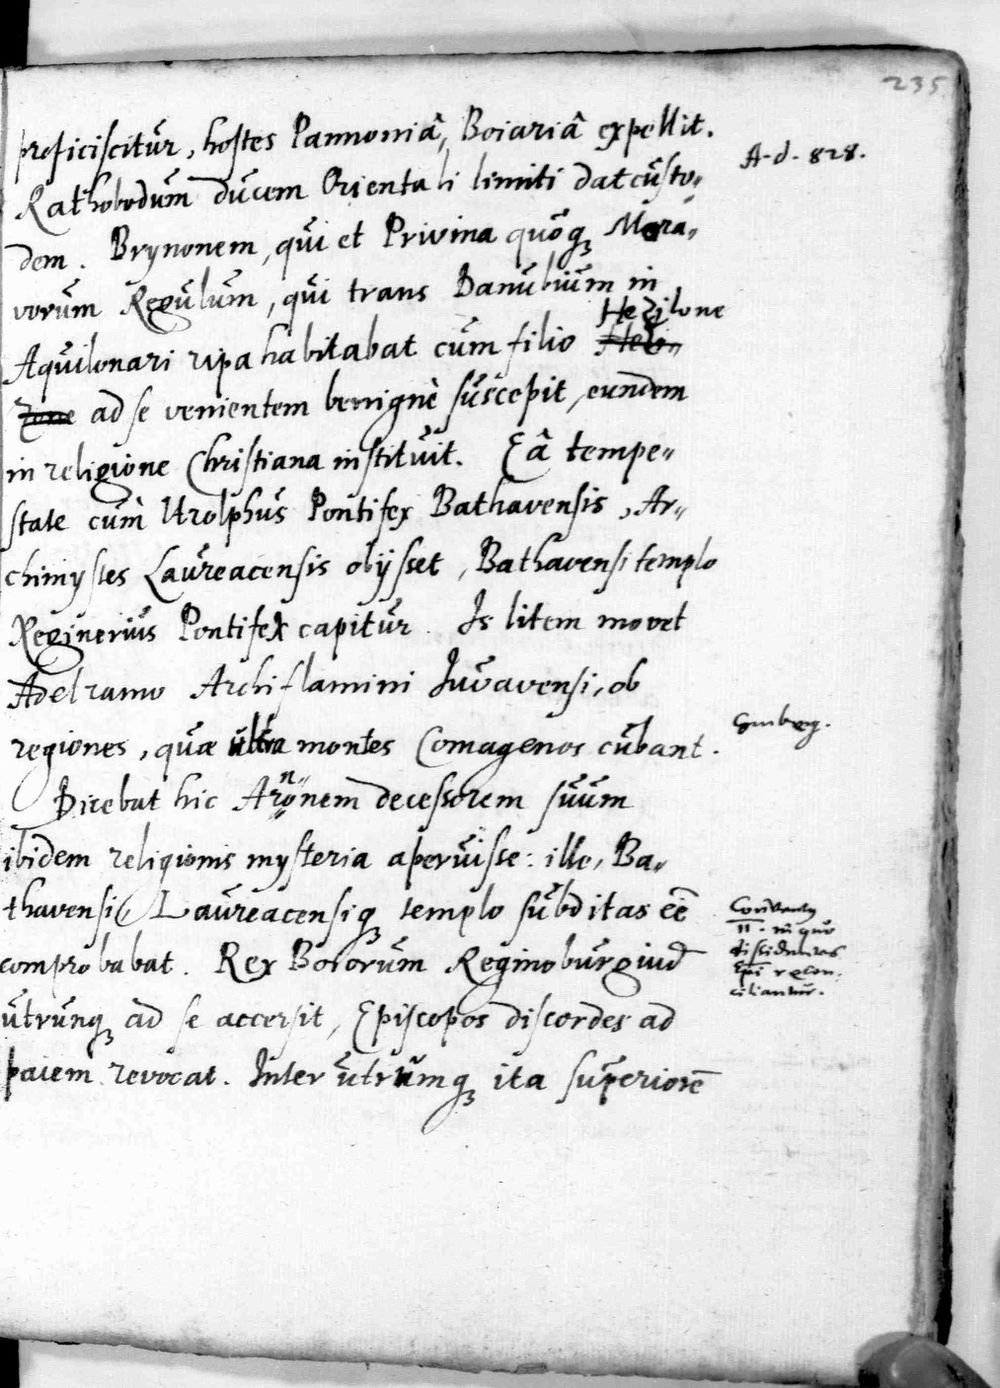 235
proficiscitur, hostes Pannoniâ, Boiariâ expellit.
A. d. 828.
Rathobodum ducem Orientali limiti dat custo„
dem. Brynonem, qui et Privina quoq Mora„
vorum Regulum, qui trans Danubium in
Hezilone
Aquilonari ripa habitabat cum filio Helo„
Zone ad se venientem benignè suscepit, eundem
in religione Christiana instituit. Eâ tempe„
state cum Urolphus Pontifex Bathavensis, Ar„
chimystes Laureacensis obijsset, Bathavensi templo
Reginerius Pontifex capitur. Is litem movet
Adelramo Archiflamini Iuvavensi, ob
regiones, quæ ultra montes Comagenos cubant.
Dicebat hic Arnonem decessorem suum
ibidem religionis mysteria aperuisse: ille, Ba„
thavensi, Laureacensiq templo subditas eē
comprobabat. Rex Boiorum Reginoburgium
utrunq ad se accersit, Episcopos discordes ad
pacem revocat. Inter utrumq ita superiorē
Conventus
II. in quo
dissidentes
Epī recon„
ciliantur.